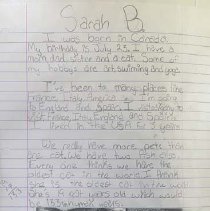 Sarah B.
I was born in Canada.
My birthday is July 23. I have a
mom dad sister and a cat. Some of
my hobbys are art, swimming and
I've been to many places like
France, Italy, America I'm going
to England and Spain. I
visit France, Italy, England and Spain.
I lived in the USA for 3 years
We really have more pets than
one cat, we have two
Every one thinks we have the
oldest cat in the world. I think
she is the oldest cat in the world
She is years old which would
be 133 human years.